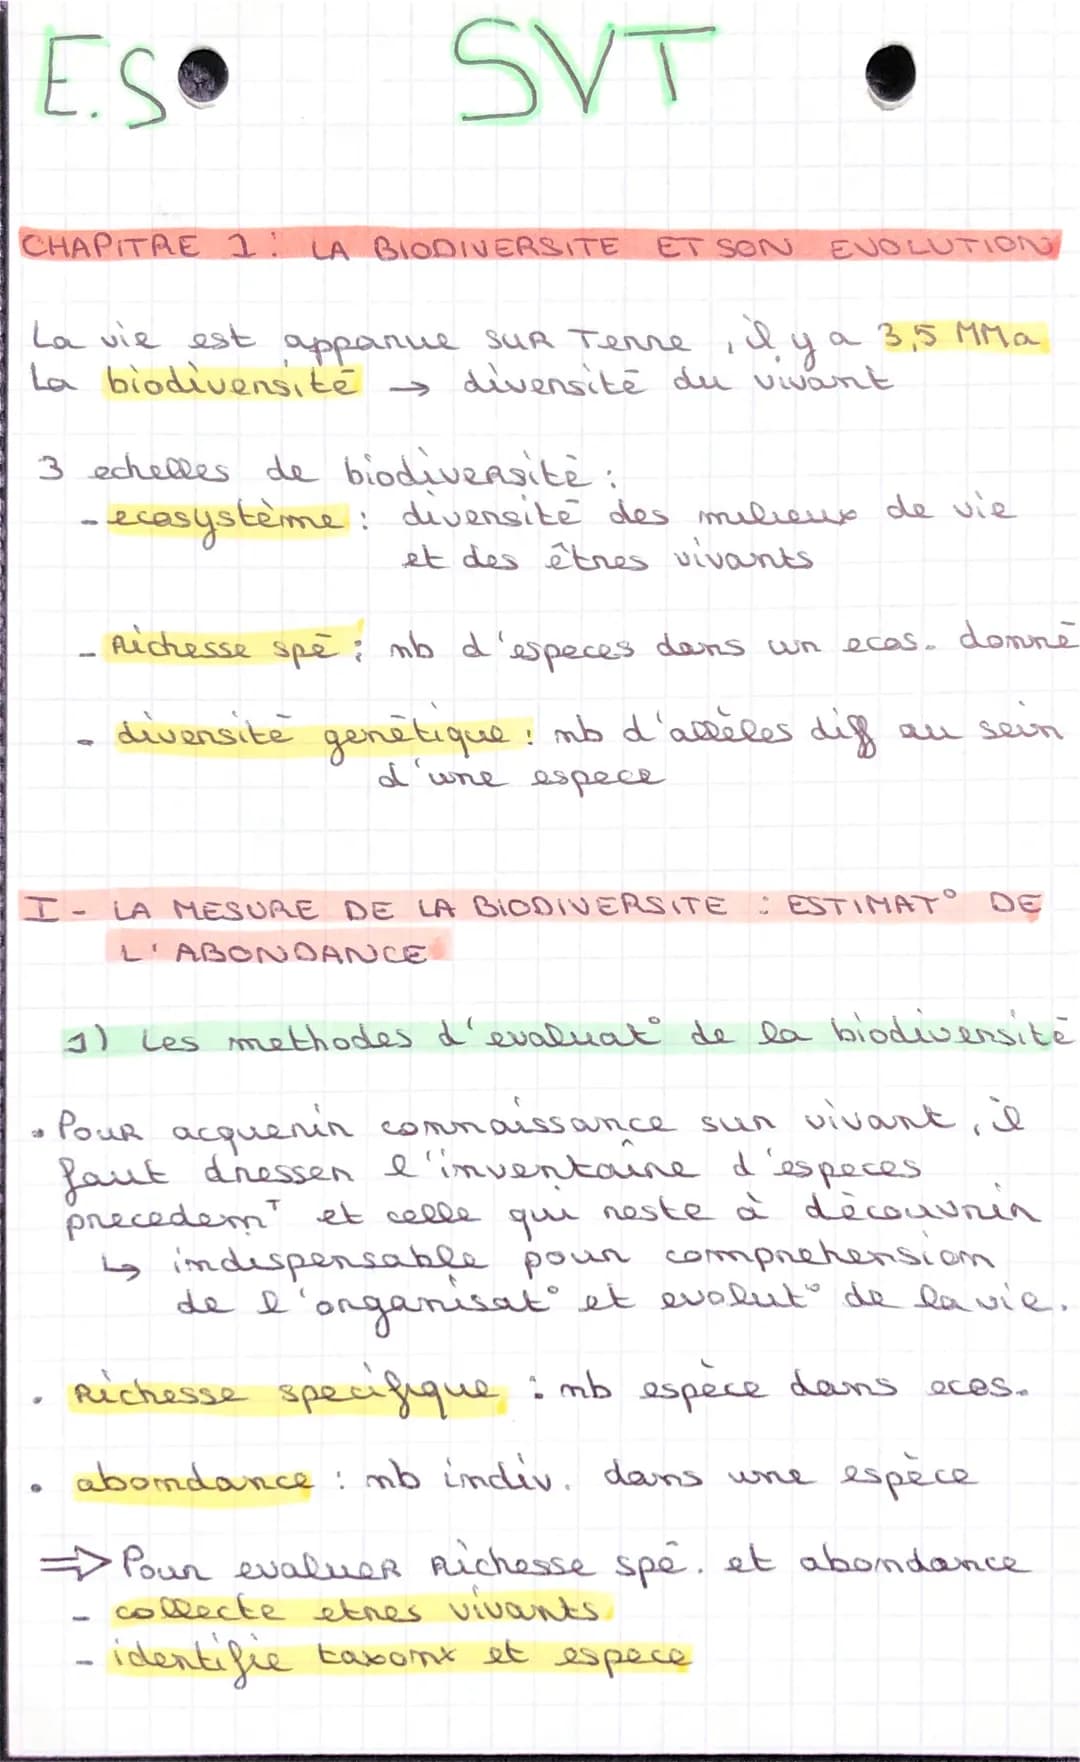 E.S SVT
CHAPITRE 1 : LA BIODIVERSITE ET SON EVOLUTION
La vie est apparue sur Terre, il y a 3,5 MMa
La biodiversité → diversité du vivant
3 echelles de biodiversité :
- ecosystème : diversité des milieux de vie
et des êtres vivants
- Richesse spé : nb d'especes dans un ecos. donné
- diversité genétique : nb d'allèles diff au sein
d'une espece
I - LA MESURE DE LA BIODIVERSITE : ESTIMAT° DE
L'ABONDANCE
1) Les methodes d'evaluat° de la biodiversité
• Pour acquerir connaissance sur vivant, il
faut dresser l'inventaire d'especes
precedemT et celle qui reste à découvrir
↳ indispensable pour comprehension
de l'organisat° et evolut° de la vie.
• Richesse specifique : nb espèce dans ecos.
• abondance : nb indiv. dans une espèce
⇒ Pour evaluer Richesse spé. et abondance
- collecte etres vivants
- identifie taxonx et espece